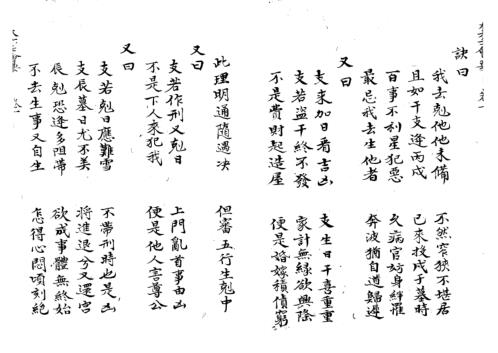 訣曰
我去剋他他未備 不然窄狹不堪居
且如干支逢丙戌 已來投戌子墓時
百事不利星犯惡 久病官妨身絆罹
最忌我去生他者 奔波猶自道歸遲
又曰
支來加日看吉凶 支生日干喜重重
支若盜干終不發 家計無緣欲興隆
不是費財起造屋 便是婚嫁積債窮
此理明通隨遇决 但審五行生剋中
又曰
支若作刑又剋日 上門亂首事由凶
不是下人來犯我 便是他人害尊公
又曰
支若剋日應難雪 不帶刑時也是凶
支辰墓日尤不美 將進退兮又還宮
辰剋恐逢多阻帶 欲成事體無終始
不去生事又自生 怎得心悶頃刻絶